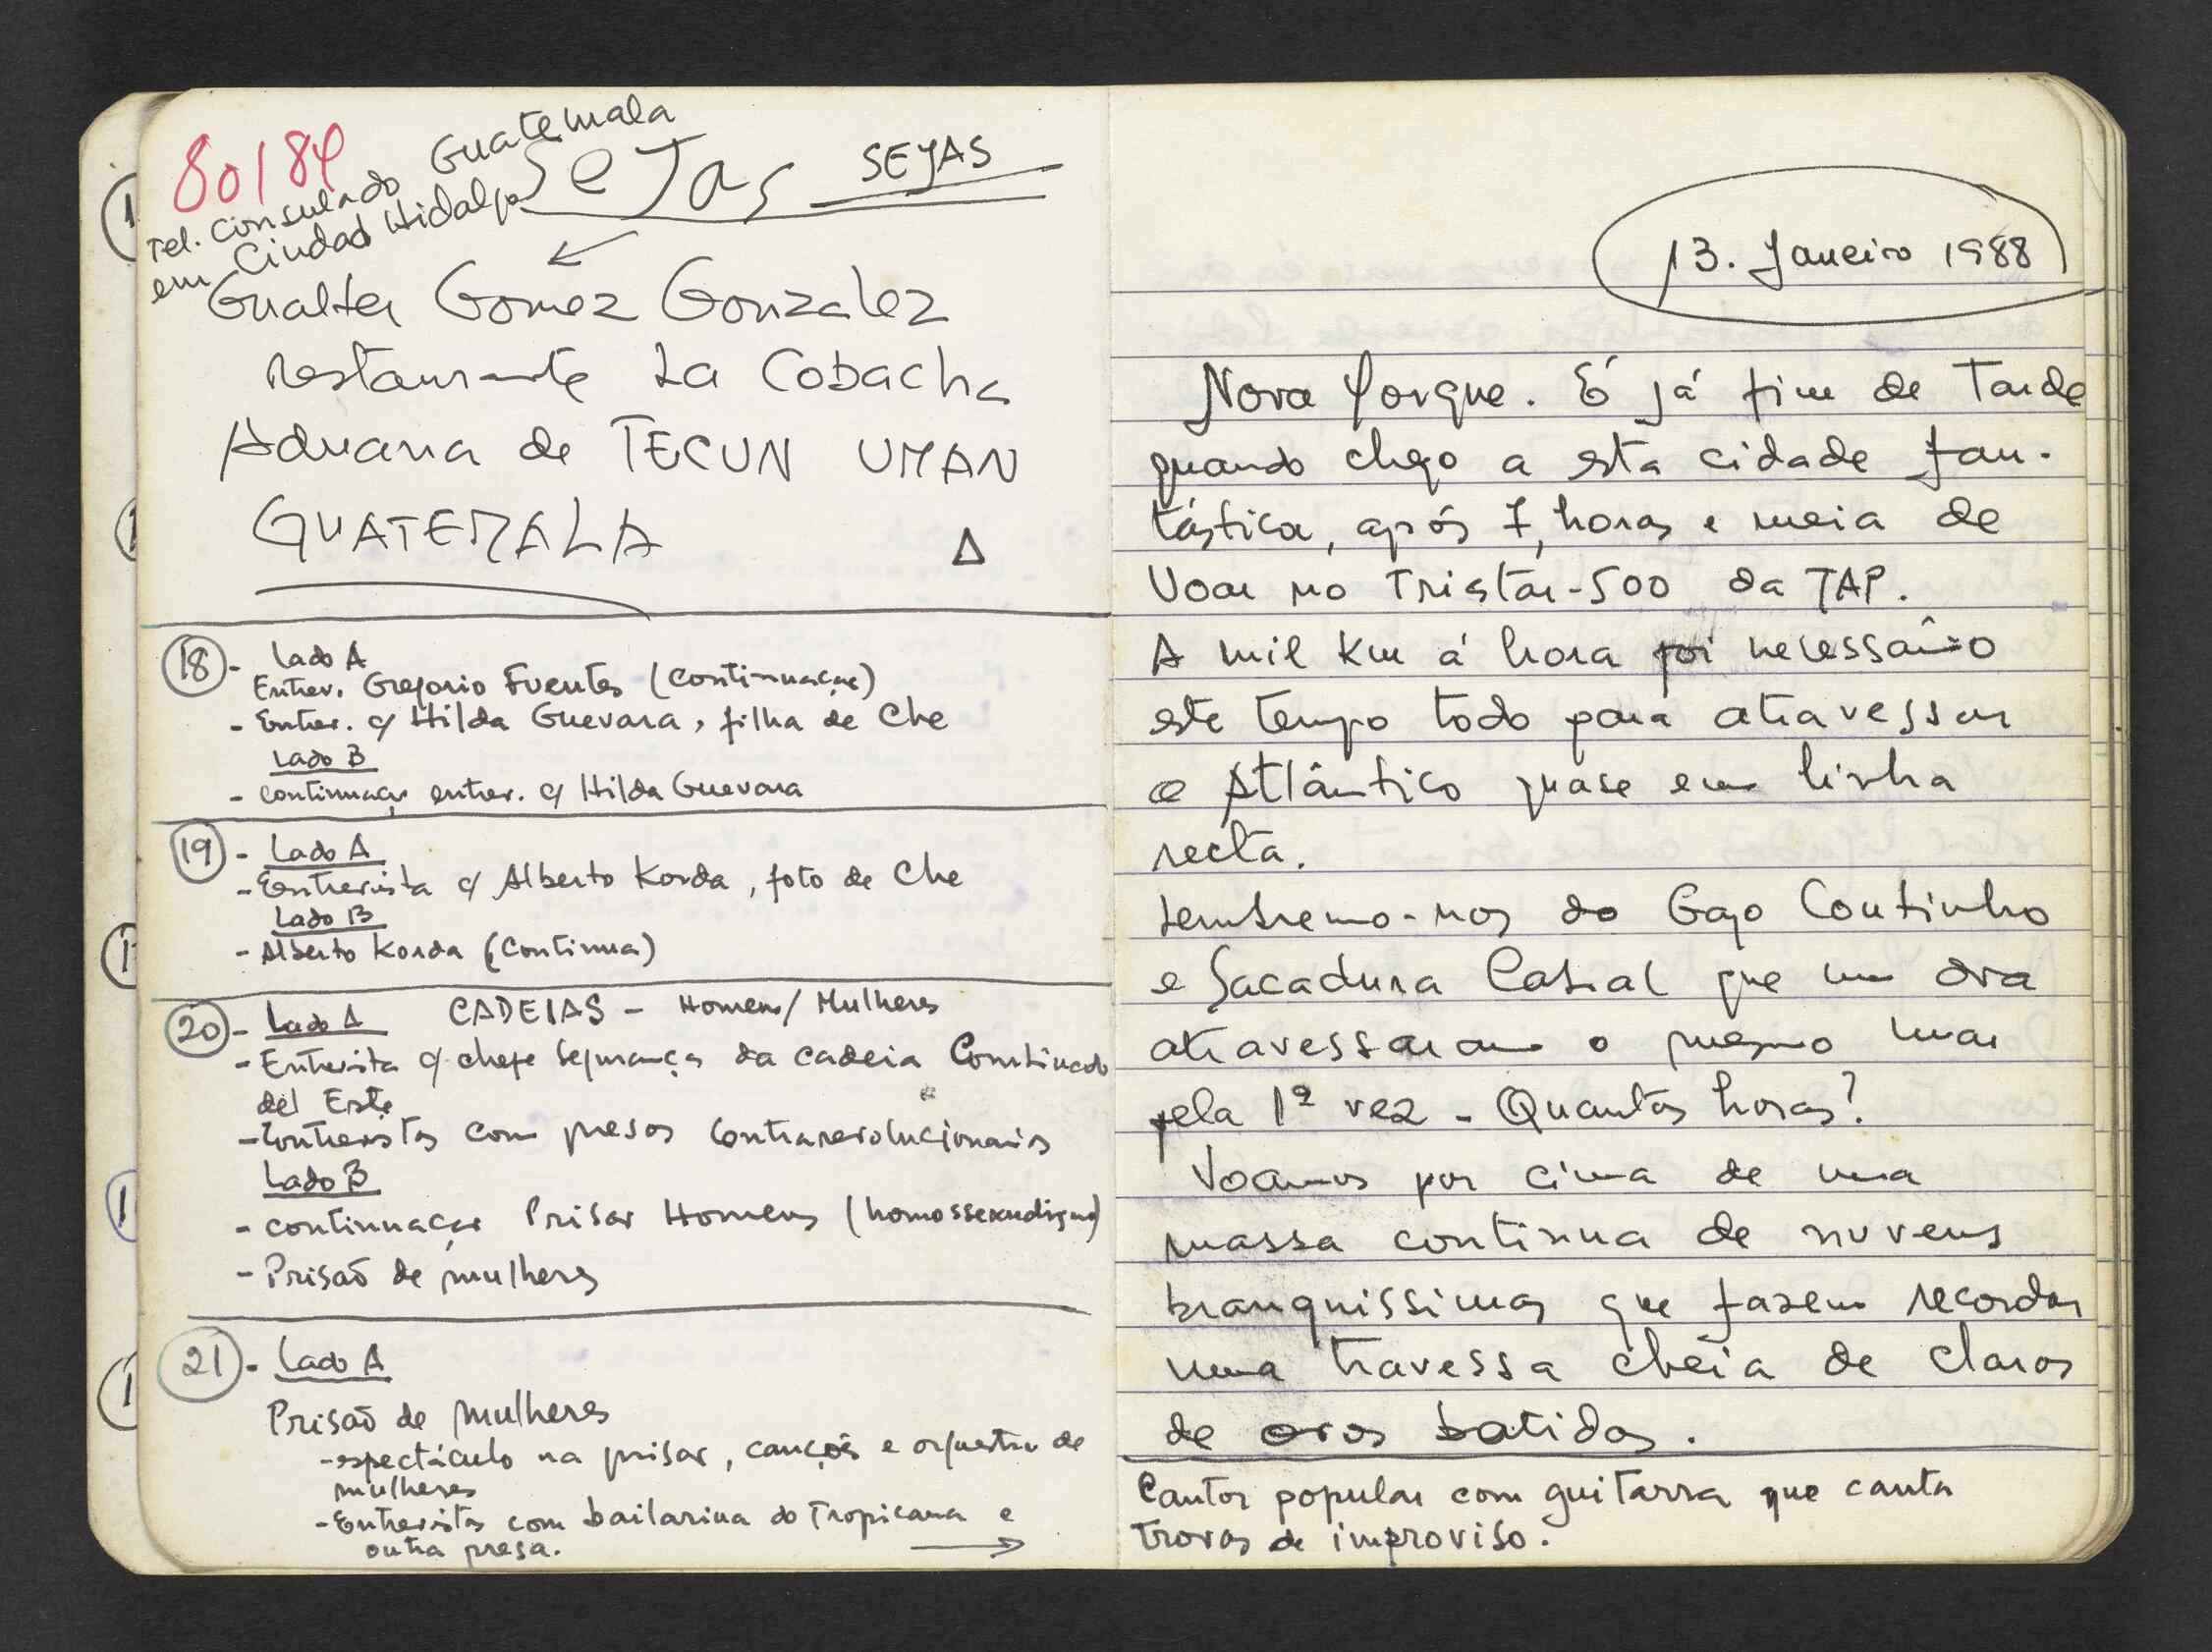 80184
Tel. consulado Guatemala
em Ciudad Hidalgo
SeJas SEJAS
Gualter Gomez Gonzalez
restaurante La Cobacha
Aduana de TECUN UMAN
GUATEMALA Δ
18 - Lado A
Entrev. Gregorio Fuentes (continuação)
- Entrev. c/ Hilda Guevara, filha de Che
Lado B
- continuação entrev. c/ Hilda Guevara
19 - Lado A
- Entrevista c/ Alberto Korda, foto de Che
Lado B
- Alberto Korda (continua)
20 - Lado A CADEIAS - Homens/Mulheres
- Entrevista c/ chefe segurança da cadeia Combinado
del Este
- Entrevistas com presos contrarevolucionarios
Lado B
- continuação Prisão Homens (homossexualismo)
- Prisão de mulheres
21 - Lado A
Prisão de mulheres
- espectáculo na prisão, canções e orquestra de
mulheres
- Entrevistas com bailarina do Tropicana e
outra presa. →
13. Janeiro 1988
Nova Yorque. É já fim de tarde
quando chego a esta cidade fan-
tástica, após 7, horas e meia de
voar no Tristar-500 da TAP.
A mil km á hora foi necessário
este tempo todo para atravessar
o Atlântico quase em linha
recta.
Lembremo-nos do Gago Coutinho
e Sacadura Cabral que
atravessaram o mesmo mar
pela 1ª vez - Quantas horas?
Voamos por cima de uma
massa continua de nuvens
branquissimas que fazem recordar
uma travessa cheia de claras
de ovos batidas.
Cantor popular com guitarra que canta
trovas de improviso.